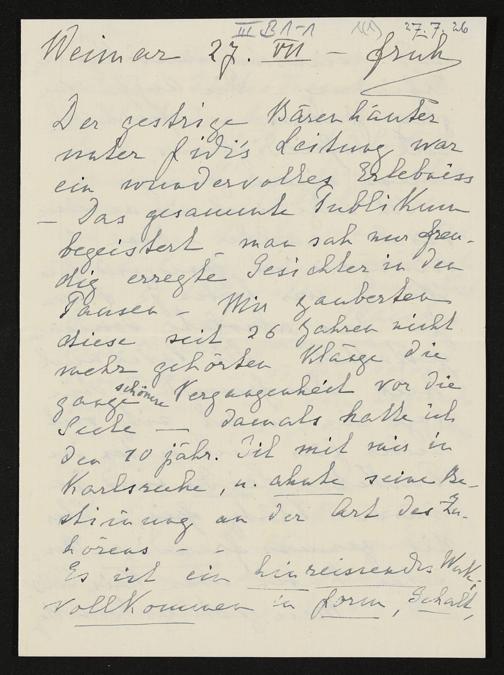 III B 1-1 NA 27.7.26
Weimar 27. VII – früh
Der gestrige Bärenhäuter
unter Fidi's Leitung war
ein wundervolles Erlebniss
– Das gesammte Publikum
begeistert, man sah nur freu-
dig erregte Gesichter in den
Pausen – Mir zauberten
diese seit 26 Jahren nicht
mehr gehörten Klänge die
ganze schönere Vergangenheit vor die
Seele – damals hatte ich
den 10 jähr. Til mit mir in
Karlsruhe, u. ahnte seine Be-
stimmung an der Art des Zu-
hörens – –
Es ist ein hinreissendes Werk,
vollkommen in Form, Gehalt,